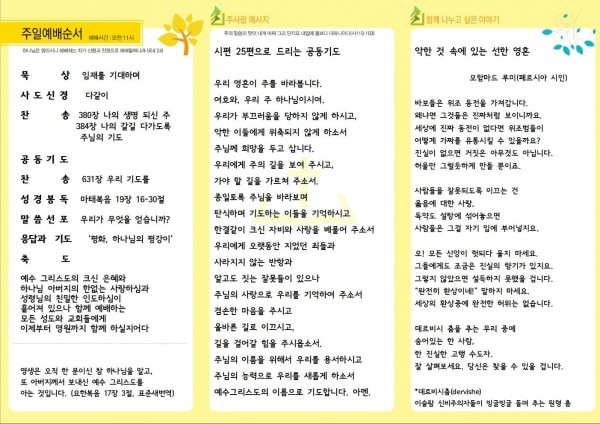 주일예배순서 예배시간 : 오전 11시
하나님은 영이시니 예배하는 자가 신령과 진정으로 예배할찌니라 (요4:24)
묵 상 임재를 기대하며
사 도 신 경 다같이
찬 송 380장 나의 생명 되신 주
384장 나의 갈길 다가도록
주님의 기도
공 동 기 도
찬 송 631장 우리 기도를
성 경 봉 독 마태복음 19장 16-30절
말 씀 선 포 우리가 무엇을 얻습니까?
응답과 기도 '평화, 하나님의 평강이'
축 도
예수 그리스도의 크신 은혜와
하나님 아버지의 한없는 사랑하심과
성령님의 친밀한 인도하심이
흩어져 있으나 함께 예배하는
모든 성도와 교회들에게
이제부터 영원까지 함께 하실지어다
영생은 오직 한 분이신 참 하나님을 알고,
또 아버지께서 보내신 예수 그리스도를
아는 것입니다. (요한복음 17장 3절, 표준새번역)
주사랑 메시지
주의 말씀의 맛이 내게 어찌 그리 단지요 내입에 꿀보다 더하니이다(시119:103)
시편 25편으로 드리는 공동기도
우리 영혼이 주를 바라봅니다.
여호와, 우리 주 하나님이시여.
우리가 부끄러움을 당하지 않게 하시고,
악한 이들에게 위축되지 않게 하소서
주님께 희망을 두고 삽니다.
우리에게 주의 길을 보여 주시고,
가야 할 길을 가르쳐 주소서.
종일토록 주님을 바라보며
탄식하며 기도하는 이들을 기억하시고
한결같이 크신 자비와 사랑을 베풀어 주소서
우리에게 오랫동안 지었던 죄들과
사라지지 않는 반항과
알고도 짓는 잘못들이 있으나
주님의 사랑으로 우리를 기억하여 주소서
겸손한 마음을 주시고
올바른 길로 이끄시고,
길을 걸어갈 힘을 주시옵소서.
주님의 이름을 위해서 우리를 용서하시고
주님의 능력으로 우리를 새롭게 하소서
예수그리스도의 이름으로 기도합니다. 아멘.
함께 나누고 싶은 이야기
악한 것 속에 있는 선한 영혼
모함마드 루미(페르시아 시인)
바보들은 위조 동전을 가져갑니다.
왜냐면 그것들은 진짜처럼 보이니까요.
세상에 진짜 동전이 없다면 위조범들이
어떻게 가짜를 유통시킬 수 있을까요?
진실이 없으면 거짓은 아무것도 아닙니다.
허울만 그럴듯하게 만들 뿐이죠.
사람들을 잘못되도록 이끄는 건
옳음에 대한 사랑,
독약도 설탕에 섞어놓으면
사람들은 그걸 자기 입에 부어넣지요.
오! 모든 신앙이 헛되다 울지 마세요.
그들에게도 조금은 진실의 향기가 있지요.
그렇지 않았으면 설득하지 못했을 겁니다.
"완전히 환상이네!" 말하지 마세요.
세상의 환상중에 완전한 허위는 없습니다.
데르비시 춤을 추는 무리 중에
숨어있는 한 사람,
한 진실한 고행 수도자.
잘 살펴보세요. 당신은 찾을 수 있을 겁니다.
*데르비시춤(dervishe)
이슬람 신비주의자들이 빙글빙글 돌며 추는 원형 춤